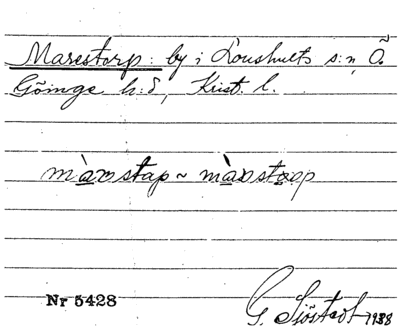 Marestorp: by i Loushults s:n, Ö.
Göinge h:d, Krist. l.
màrstap ~ màrstorp
Nr 5428
G. Sjöstedt 1938